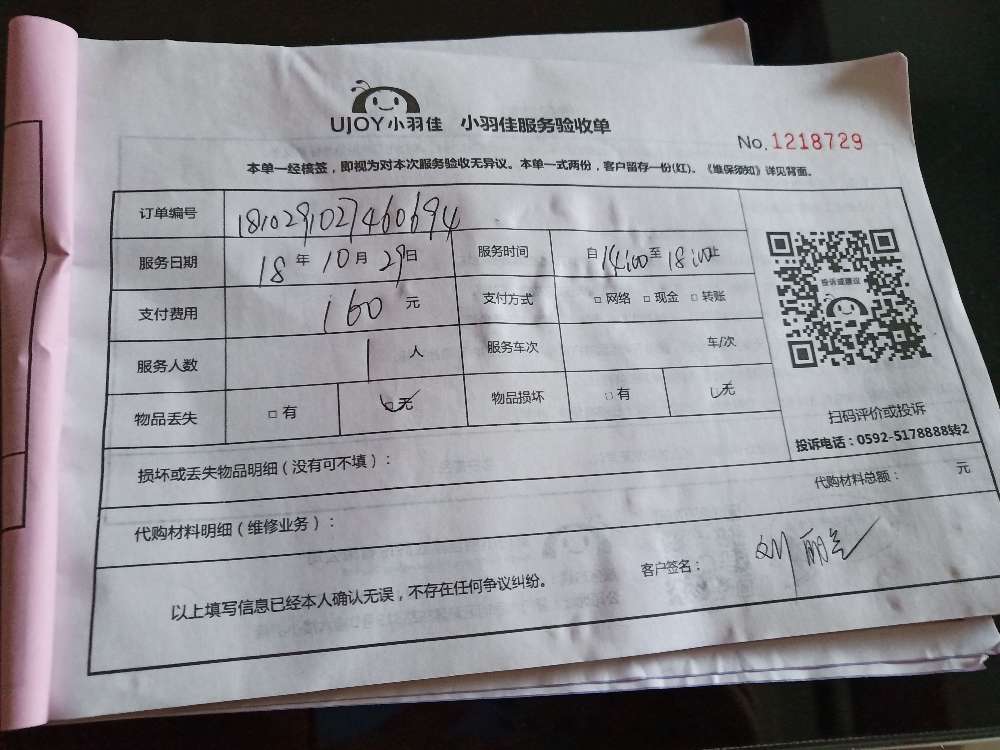 UJOY小羽佳 小羽佳服务验收单
No.1218729
本单一经核签，即视为对本次服务验收无异议。本单一式两份，客户留存一份(红)。《维保须知》详见背面。
订单编号 1810291027460694
服务日期 18年10月29日 服务时间 自14:00至18:00止
投诉或建议
支付费用 160元 支付方式 □网络 □现金 □转账
服务人数 1人 服务车次 车/次
物品丢失 □有 □无 物品损坏 □有 □无
扫码评价或投诉
投诉电话：0592-5178888转2
损坏或丢失物品明细（没有可不填）：
代购材料明细（维修业务）： 代购材料总额： 元
以上填写信息已经本人确认无误，不存在任何争议纠纷。 客户签名： 刘丽